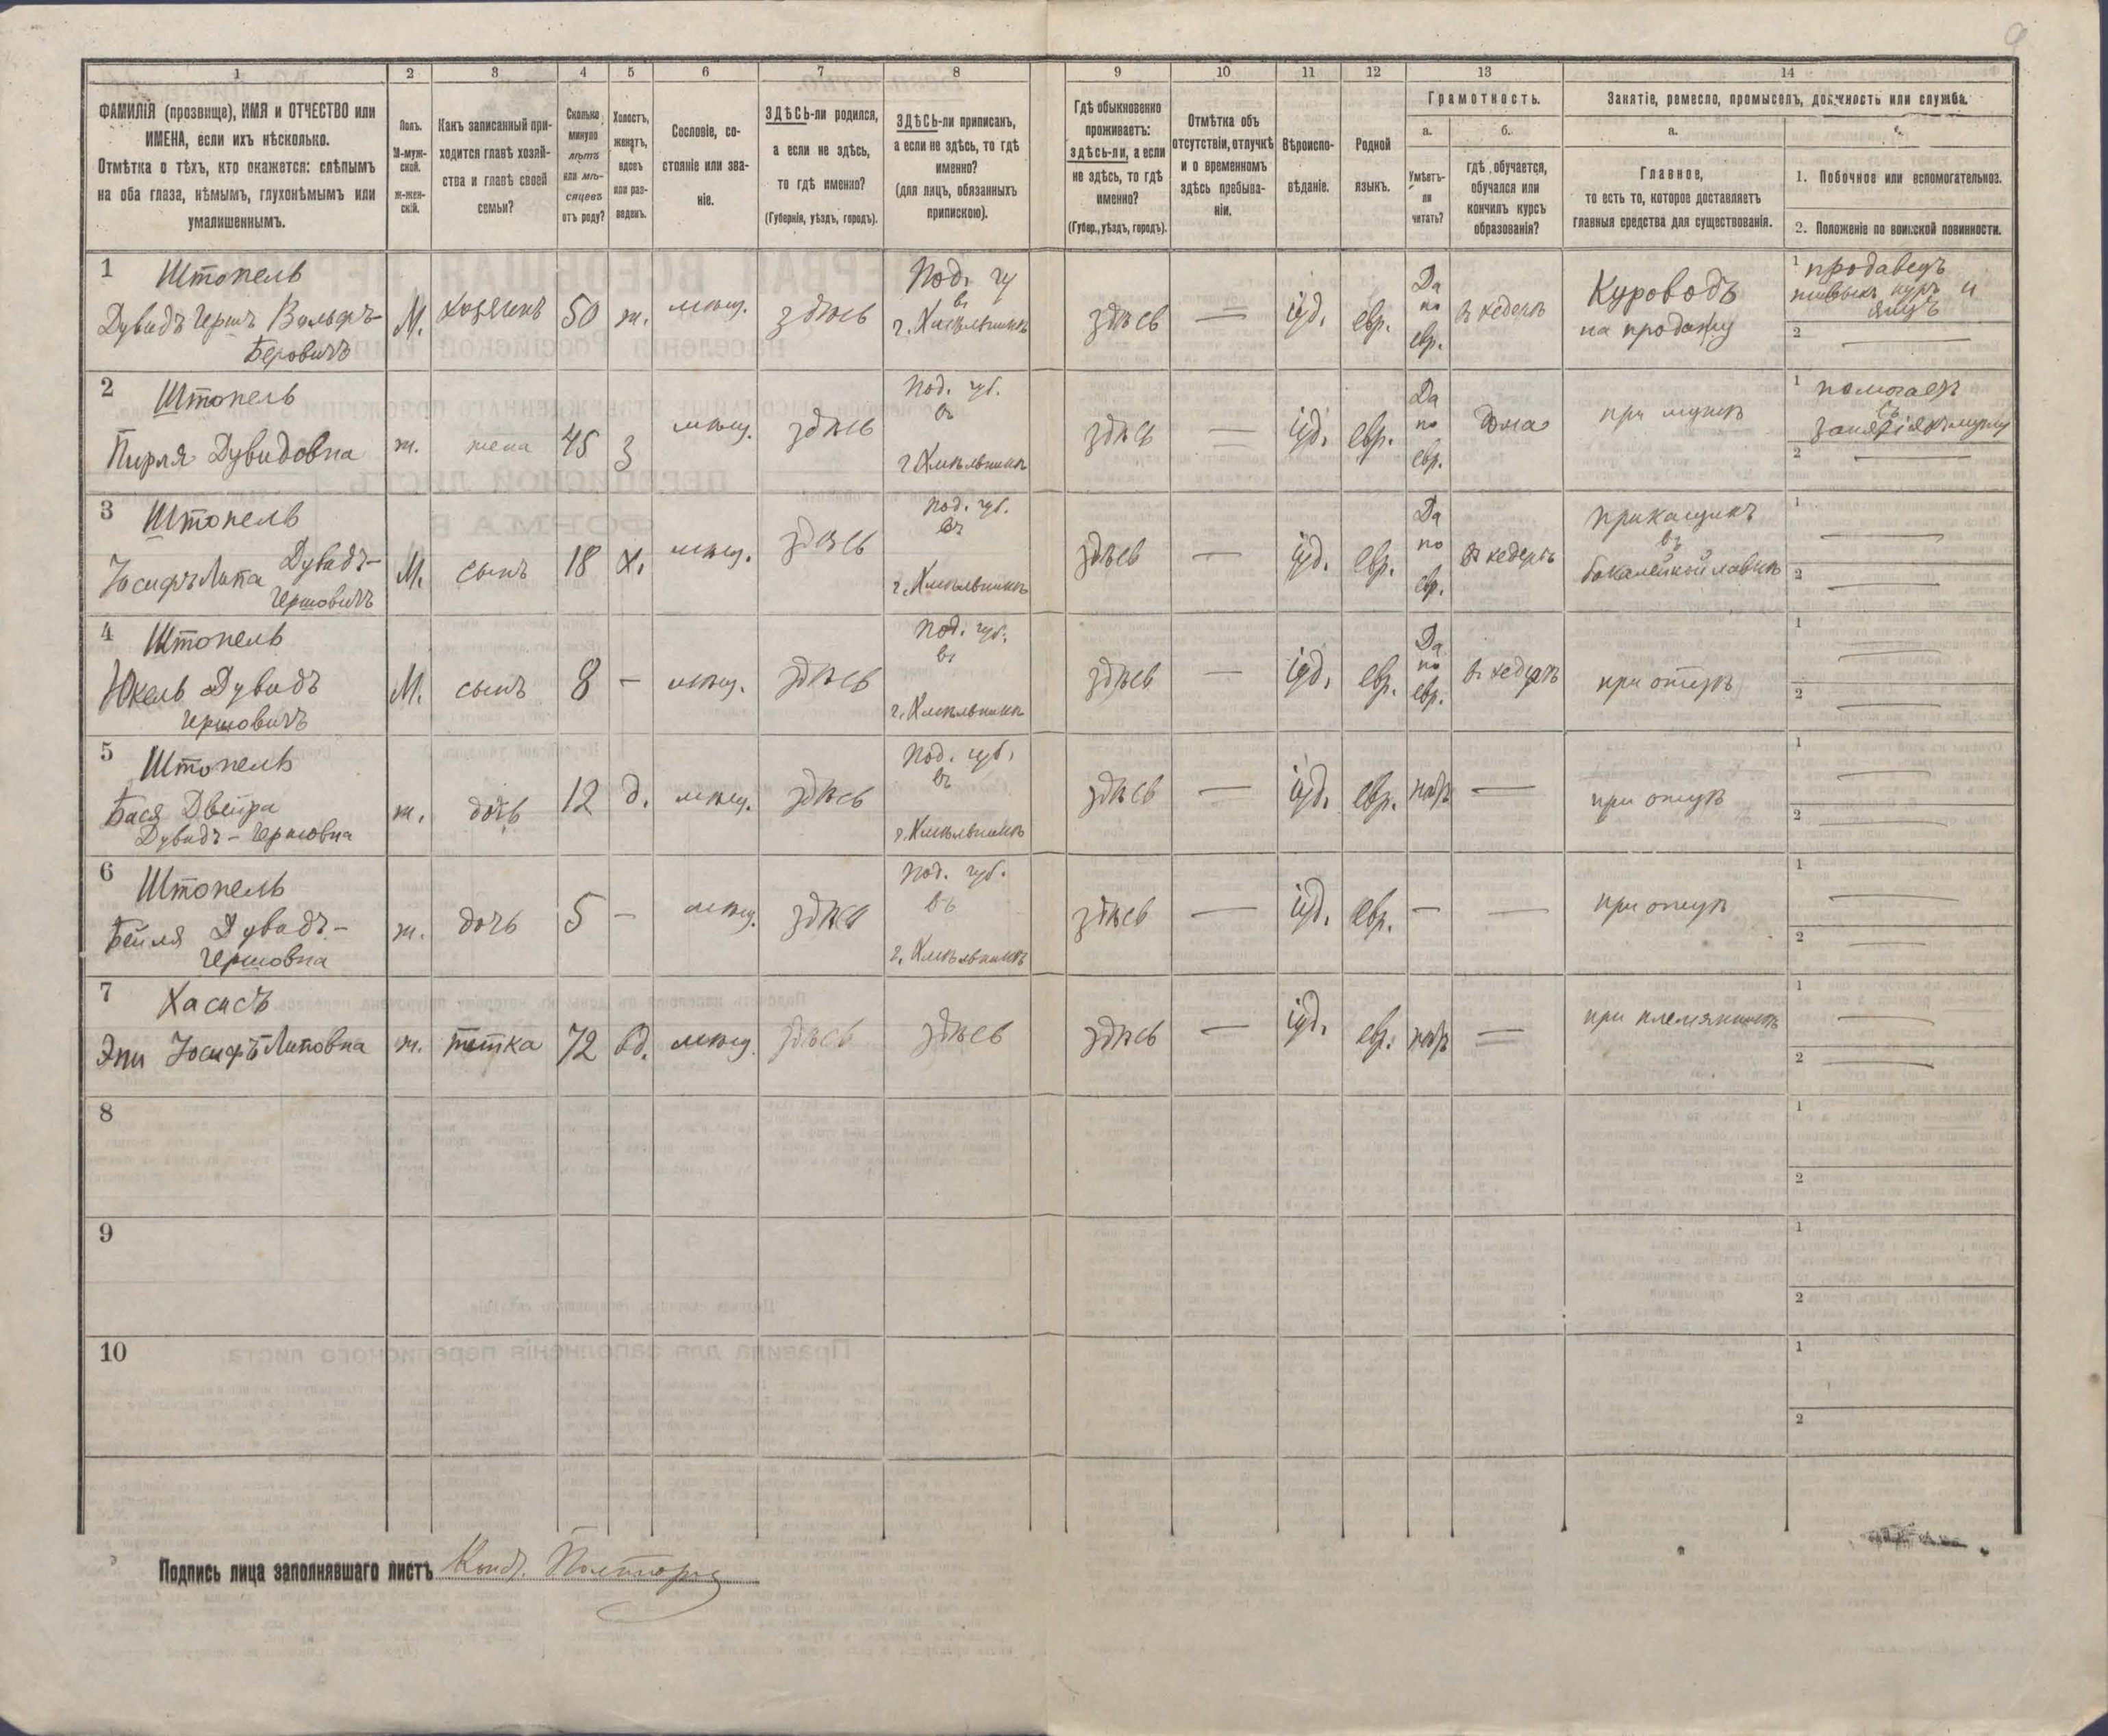 1 2 3 4 5 6 7 8 9 10 11 12 13 14
ФАМИЛІЯ (прозвище), ИМЯ и ОТЧЕСТВО или
ИМЕНА, если ихъ нѣсколько.
Отмѣтка о тѣхъ, кто окажется: слѣпымъ
на оба глаза, нѣмымъ, глухонѣмымъ или
умалишеннымъ.
Полъ.
М-муж-
ской.
ж-жен-
скій.
Какъ записанный при-
ходится главѣ хозяй-
ства и главѣ своей
семьи?
Сколько
минуло
лѣтъ
или мѣ-
сяцевъ
отъ роду?
Холостъ,
женатъ,
вдовъ
или раз-
веденъ.
Сословіе, со-
стояніе или зва-
ніе.
ЗДѢСЬ-ли родился,
а если не здѣсь,
то гдѣ именно?
(Губернія, уѣздъ, городъ).
ЗДѢСЬ-ли приписанъ,
а если не здѣсь, то гдѣ
именно?
(для лицъ, обязанныхъ
припискою).
Гдѣ обыкновенно
проживаетъ:
здѣсь-ли, а если
не здѣсь, то гдѣ
именно?
(Губер., уѣздъ, городъ).
Отмѣтка объ
отсутствіи, отлучкѣ
и о временномъ
здѣсь пребыва-
ніи.
Вѣроиспо-
вѣданіе.
Родной
языкъ.
Грамотность.
а.
Умѣетъ-
ли
читать?
б.
гдѣ обучается,
обучался или
кончилъ курсъ
образованія?
Занятіе, ремесло, промыселъ, должность или служба.
а.
Главное,
то есть то, которое доставляетъ
главныя средства для существованія.
1. Побочное или вспомогательное.
2. Положеніе по воинской повинности.
1 Штопель
Дувидъ Гершъ Вольфъ-
Беровичъ
М. хозяинъ 50 ж. мѣщ. здѣсь
Под. гу
въ
г. Хмѣльникѣ
здѣсь — іуд. евр.
Да
по
евр.
въ хедерѣ
Куроводъ
на продажу
1 продавецъ
куръ и
яицъ
2 —
2 Штопель
Пирля Дувидовна
ж. жена 45 з мѣщ. здѣсь
Под. губ.
въ
г Хмѣльникѣ
здѣсь — іуд. евр.
Да
по
евр.
дома
при мужѣ
1 помогаетъ
въ
занятіяхъ мужу
2 —
3 Штопель
Іосифъ Липа Дувидъ-
Гершовичъ
М. сынъ 18 х. мѣщ. здѣсь
Под. губ.
въ
г. Хмѣльникѣ
здѣсь — іуд. евр.
Да
по
евр.
въ хедерѣ
прикащикъ
въ
бокалейной лавкѣ
1 —
2 —
4 Штопель
Юкель Дувидъ
Гершовичъ
М. сынъ 8 — мѣщ. здѣсь
Под. губ.
въ
г. Хмѣльникѣ
здѣсь — іуд. евр.
Да
по
евр.
въ хедерѣ
при отцѣ
1 —
2 —
5 Штопель
Бася Двейра
Дувидъ-Гершовна
ж. дочь 12 д. мѣщ. здѣсь
Под. губ.
въ
г. Хмѣльникѣ
здѣсь — іуд. евр. нѣтъ —
при отцѣ
1 —
2 —
6 Штопель
Бейля Дувидъ-
Гершовна
ж. дочь 5 — мѣщ. здѣсь
Под. губ.
въ
г. Хмѣльникѣ
здѣсь — іуд. евр. — —
при отцѣ
1 —
2 —
7 Хасисъ
Эти Іосифъ Липовна
ж. тетка 72 вд. мѣщ. здѣсь здѣсь здѣсь — іуд. евр. нѣтъ —
при племянникѣ
1 —
2 —
8
1
2
9
1
2
10
1
2
Подпись лица заполнявшаго листъ